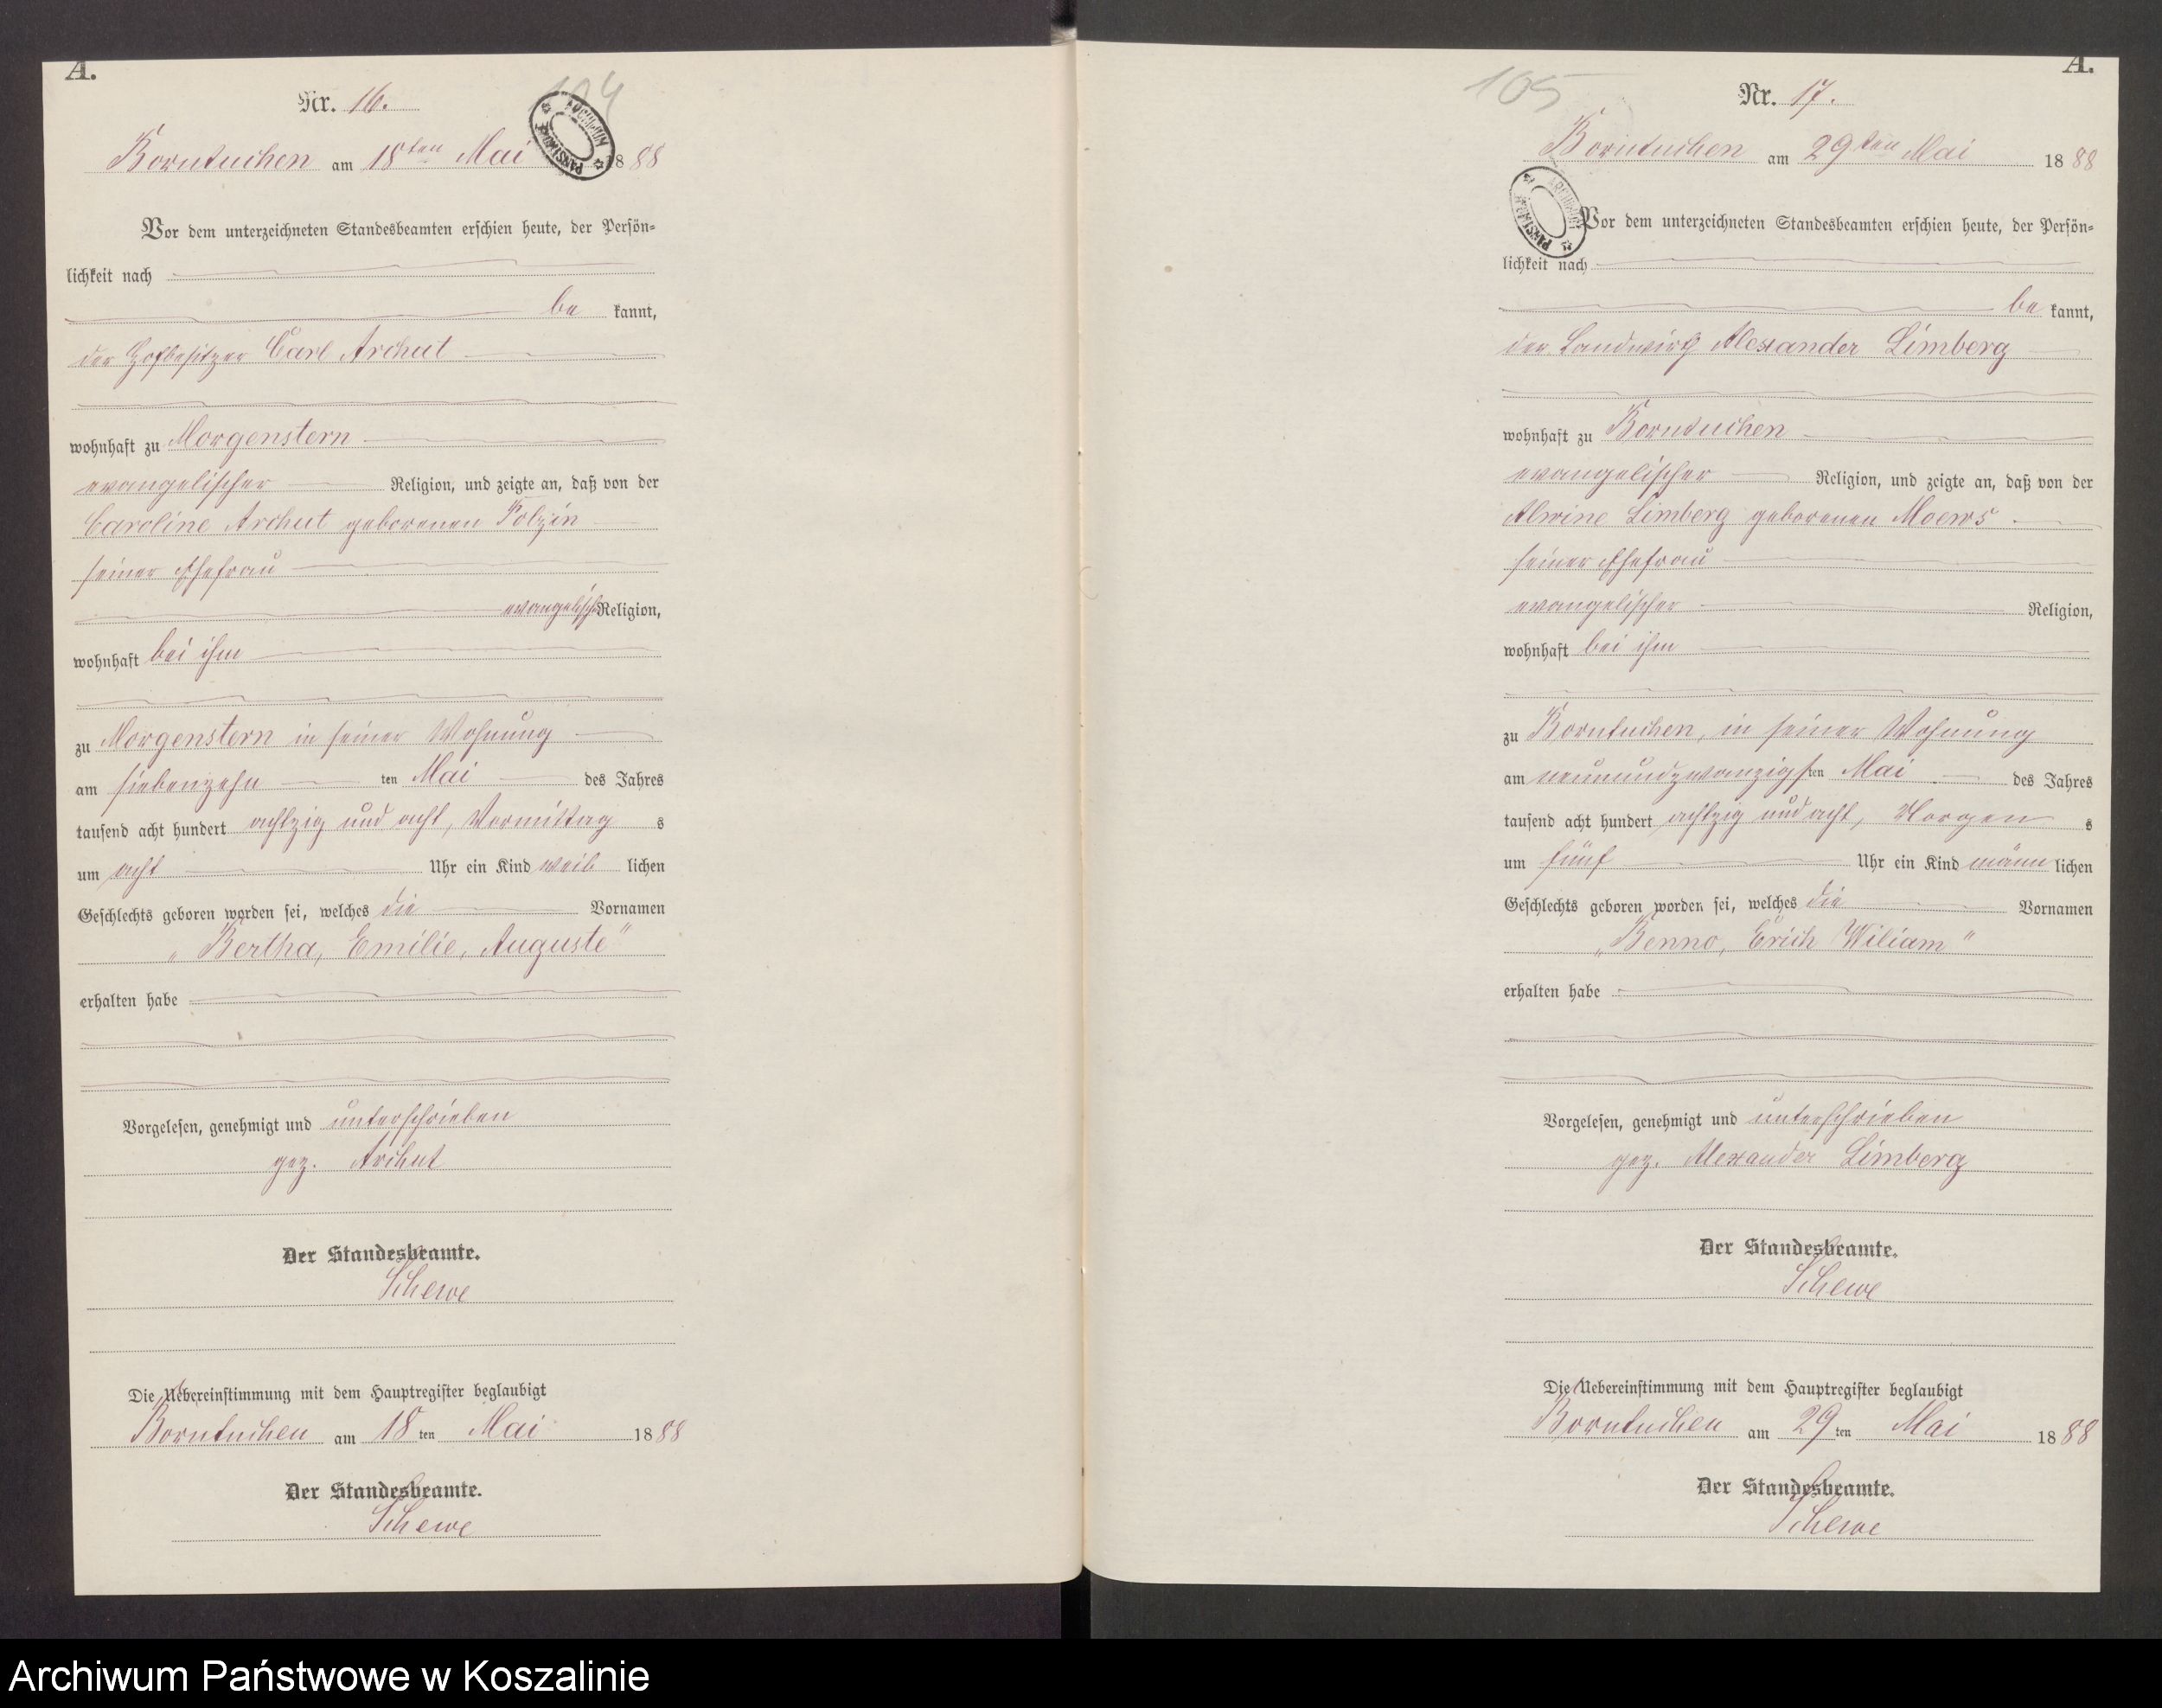 A.
Nr. 16.
104
Borntuchen am 18ten Mai 1888
Vor dem unterzeichneten Standesbeamten erschien heute, der Persön-
lichkeit nach
be kannt,
der Hofbesitzer Carl Archut
wohnhaft zu Morgenstern
evangelischer Religion, und zeigte an, daß von der
Caroline Archut geborenen Polzin
seiner Ehefrau
evangelisch Religion,
wohnhaft bei ihm
zu Morgenstern in seiner Wohnung
am siebenzehn ten Mai des Jahres
tausend acht hundert achtzig und acht, Vormittag s
um acht Uhr ein Kind weib lichen
Geschlechts geboren worden sei, welches die Vornamen
„Bertha, Emilie, Auguste"
erhalten habe
Vorgelesen, genehmigt und unterschrieben
gez. Archut
Der Standesbeamte.
Schewe
Die Uebereinstimmung mit dem Hauptregister beglaubigt
Borntuchen am 18 ten Mai 1888
Der Standesbeamte.
Schewe
A.
105
Nr. 17.
Borntuchen am 29ten Mai 1888
Vor dem unterzeichneten Standesbeamten erschien heute, der Persön-
lichkeit nach
be kannt,
der Landwirth Alexander Limberg
wohnhaft zu Borntuchen
evangelischer Religion, und zeigte an, daß von der
Alwine Limberg geborenen Moews
seiner Ehefrau
evangelischer Religion,
wohnhaft bei ihm
zu Borntuchen, in seiner Wohnung
am neunundzwanzigsten Mai des Jahres
tausend acht hundert achtzig und acht, Morgen s
um fünf Uhr ein Kind männ lichen
Geschlechts geboren worden sei, welches die Vornamen
„Benno, Erich Wiliam"
erhalten habe
Vorgelesen, genehmigt und unterschrieben
gez. Alexander Limberg
Der Standesbeamte.
Schewe
Die Uebereinstimmung mit dem Hauptregister beglaubigt
Borntuchen am 29 ten Mai 1888
Der Standesbeamte.
Schewe
Archiwum Państwowe w Koszalinie